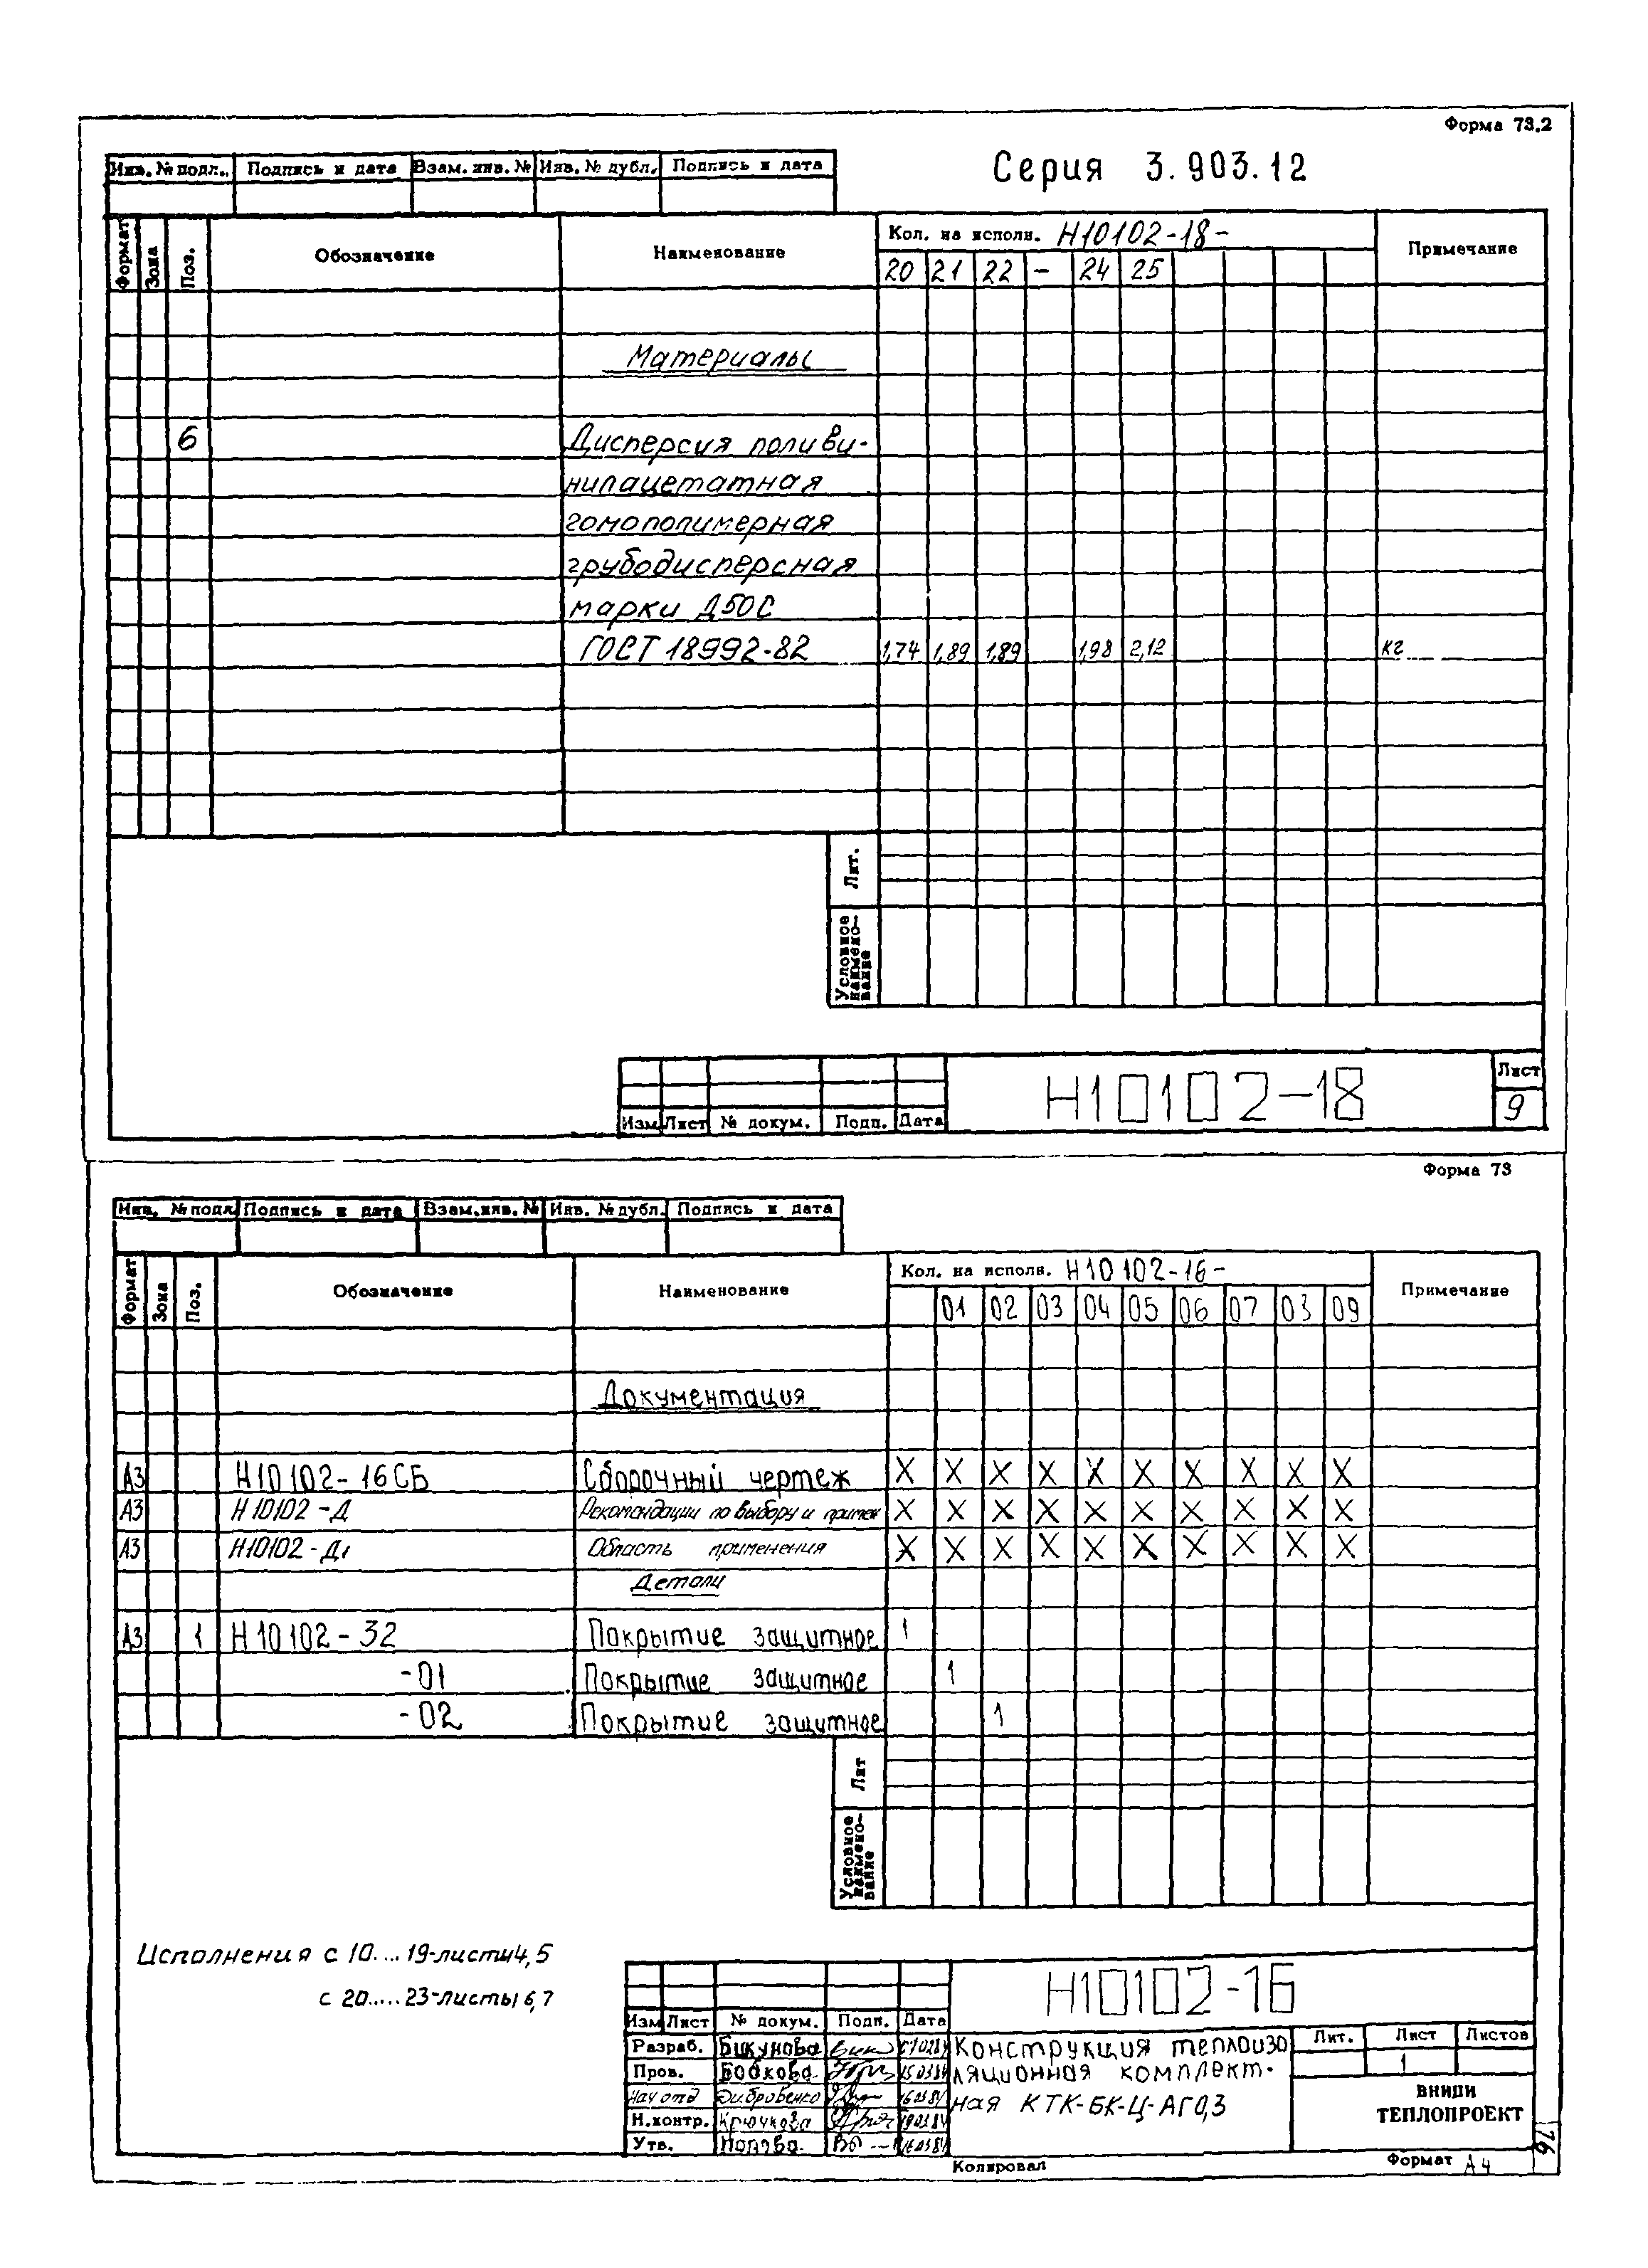 Форма 73.2
Серия 3.903.12
Инв. № подл. Подпись и дата Взам. инв. № Инв. № дубл. Подпись и дата
Формат Зона Поз. Обозначение Наименование Кол. на исполн. Н10102-18- Примечание
20 21 22 - 24 25
Материалы
6 Дисперсия поливи-
нилацетатная
гомополимерная
грубодисперсная
марки Д50С
ГОСТ 18992-82 1,74 1,89 1,89 1,98 2,12 кг
Лит.
Условное
наимено-
вание
Изм Лист № докум. Подп. Дата
Н10102-18
Лист
9
Форма 73
Инв. № подл Подпись и дата Взам.инв. № Инв. № дубл. Подпись и дата
Формат Зона Поз. Обозначение Наименование Кол. на исполн. Н10102-16- Примечание
01 02 03 04 05 06 07 03 09
Документация
А3 Н10102-16СБ Сборочный чертеж X X X X X X X X X X
А3 Н10102-Д Рекомендации по выбору и примен X X X X X X X X X X
А3 Н10102-Д1 Область применения X X X X X X X X X X
Детали
А3 1 Н10102-32 Покрытие защитное 1
-01 Покрытие защитное 1
-02 Покрытие защитное 1
Лит
Условное
наимено-
вание
Исполнения с 10....19-листы4,5
с 20.....23-листы 6,7
Н10102-16
Изм Лист № докум. Подп. Дата
Разраб. Бикунова
Пров. Бобкова
Нач отд Дибровенко
Н.контр. Крючкова
Утв. Попова
Конструкция теплоизо
ляционная комплект-
ная КТК-БК-Ц-АГ0,3
Лит. Лист Листов
1
ВНИПИ
ТЕПЛОПРОЕКТ
Копировал
Формат А4
76